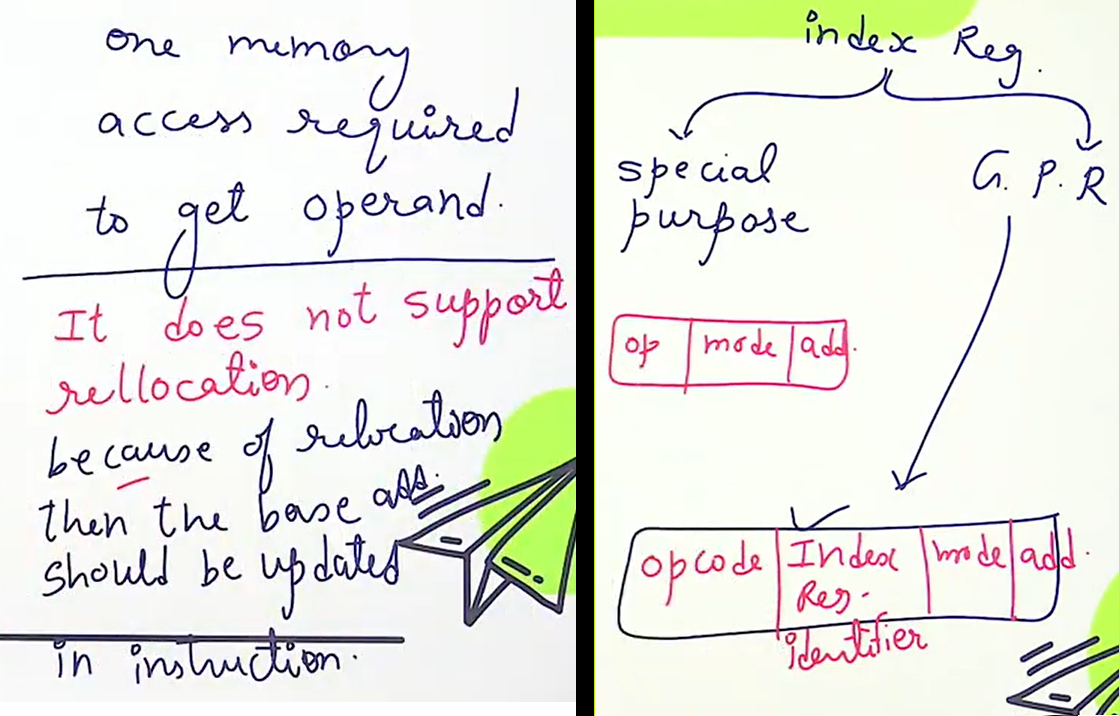 one memory
access required
to get operand.
It does not support
rellocation.
because of relocation
then the base add.
should be updated
in instruction.
index Reg.
special
purpose
G. P. R
op mode add.
opcode Index mode add.
Reg.
identifier